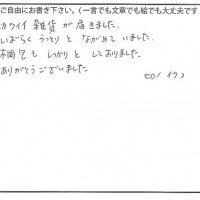 ご自由にお書き下さい。(一言でも文章でも絵でも大丈夫です
カワイイ 雑貨 が 届きました。
しばらく うっとり と ながめて いました。
も しっかり と してありました。
ありがとう ございました。